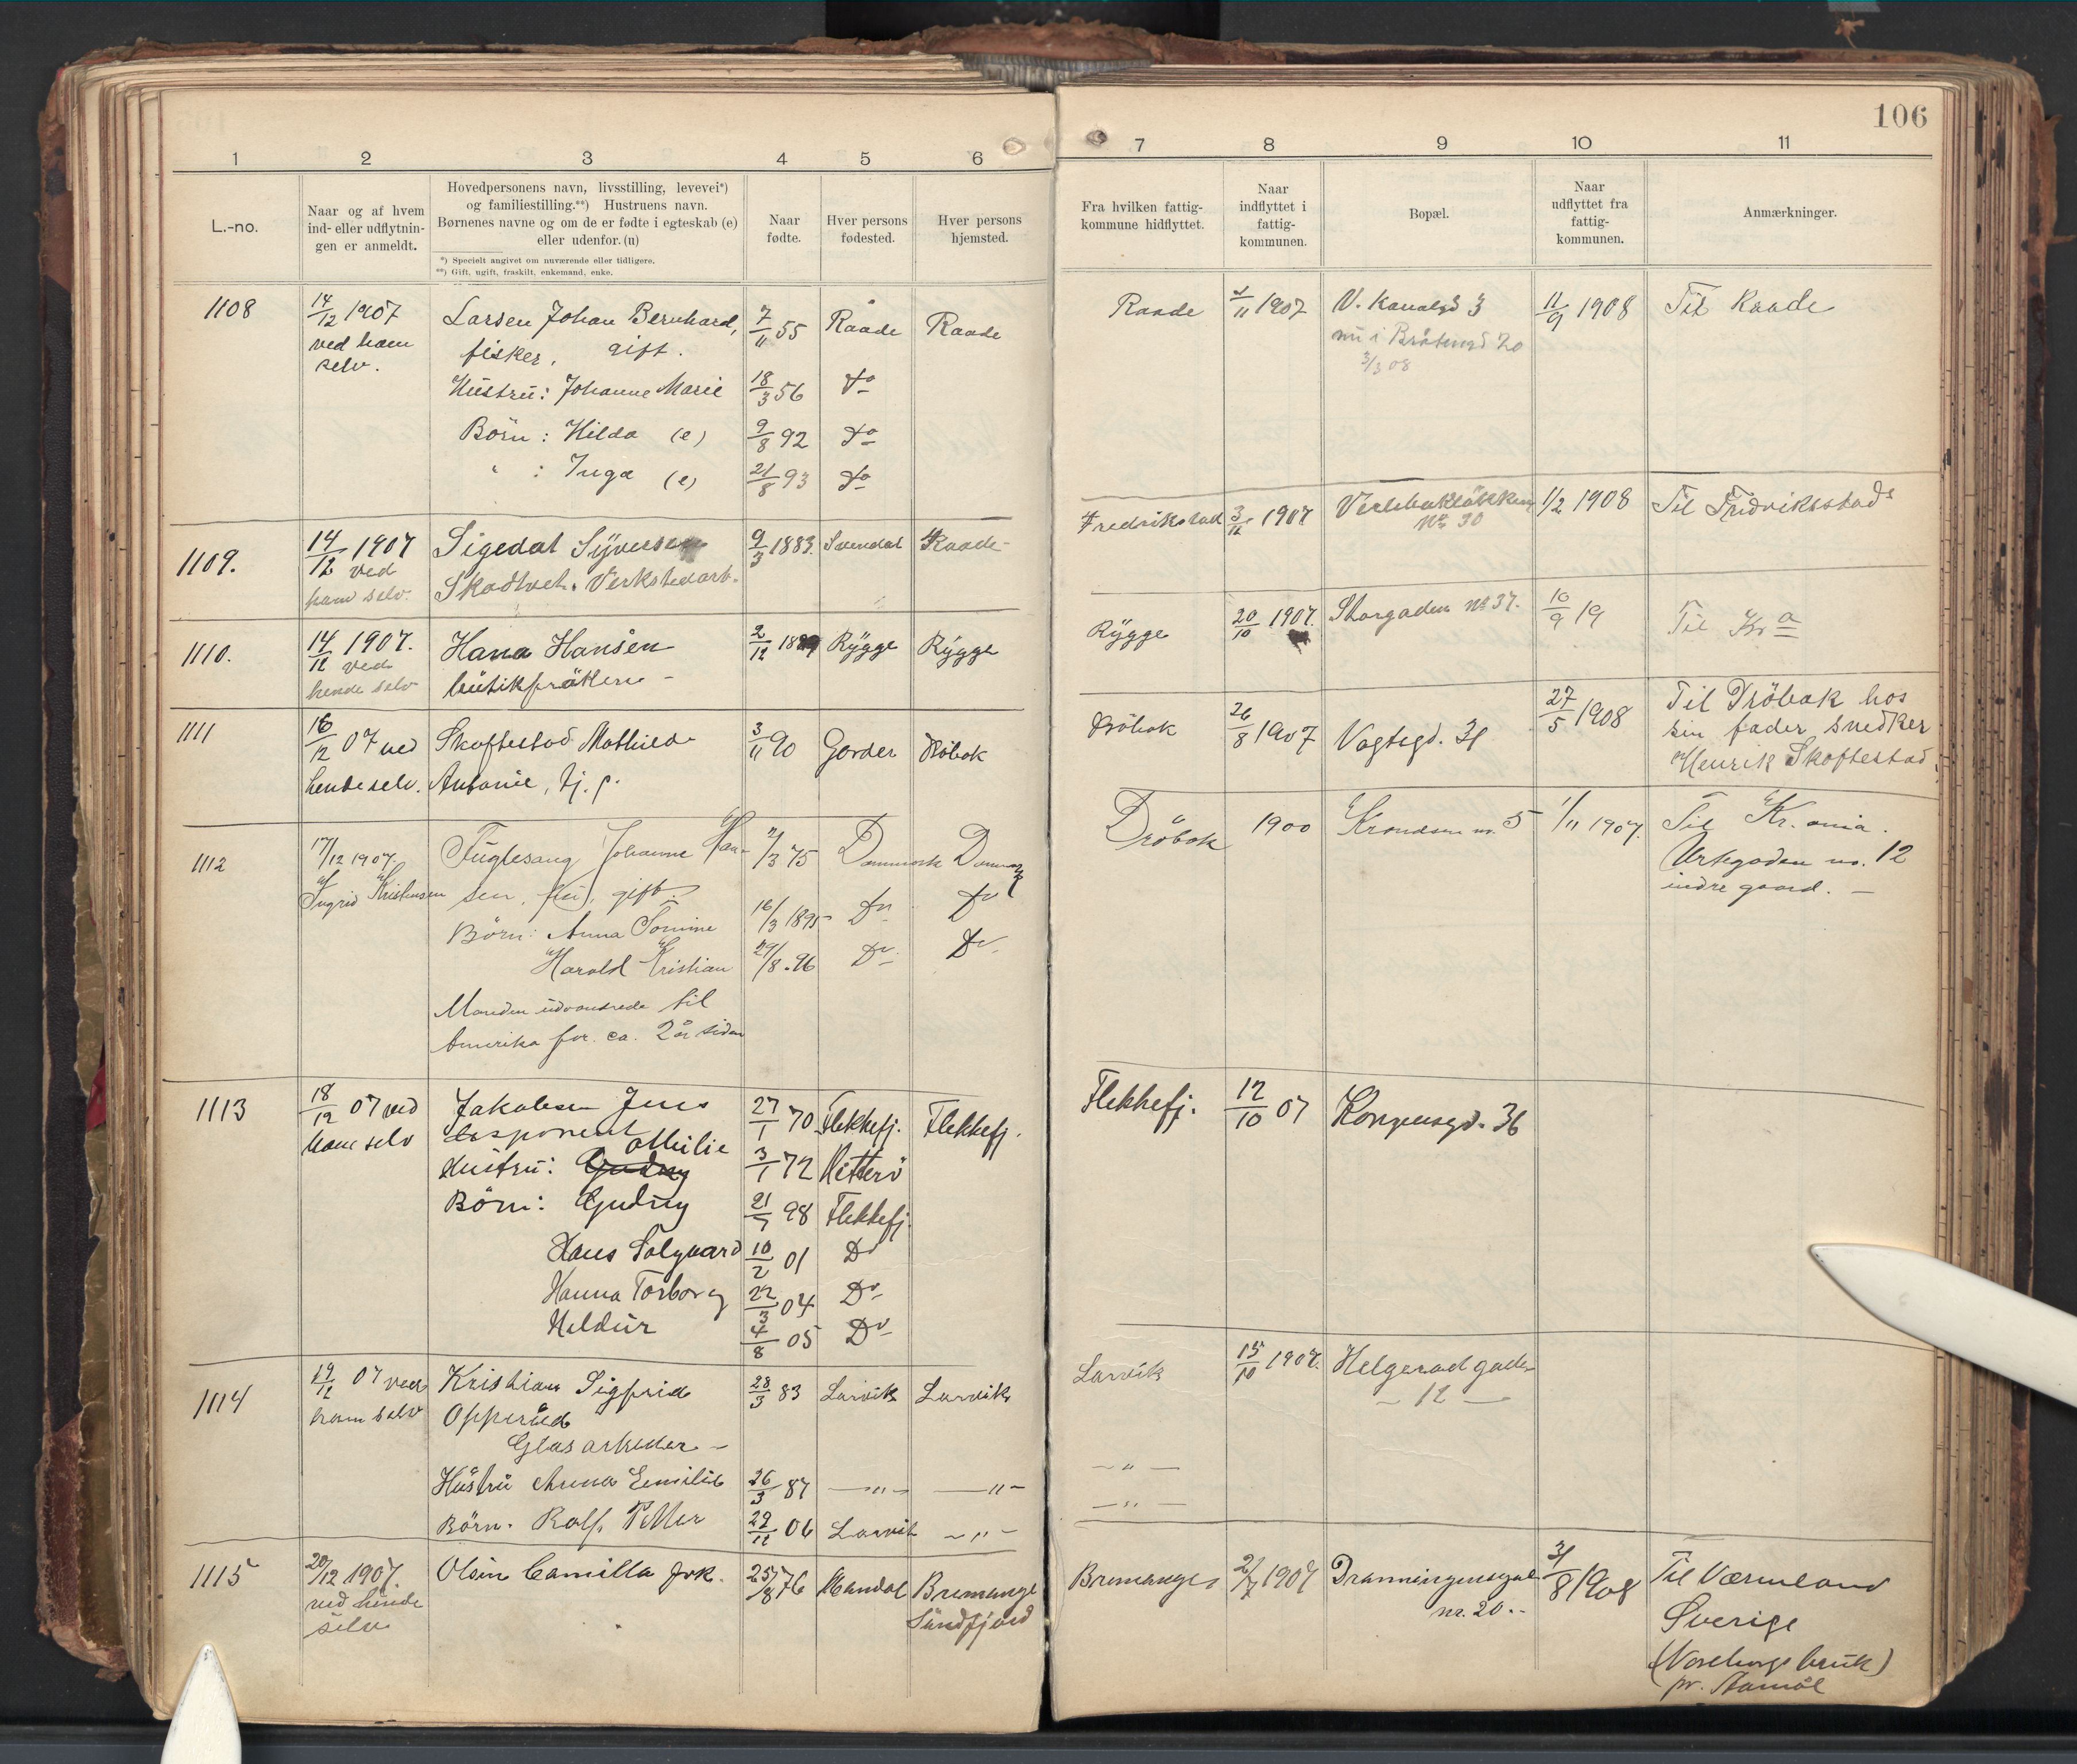 106
1 2 3 4 5 6 7 8 9 10 11
L.-no.
Naar og af hvem
ind- eller udflytnin-
gen er anmeldt.
Hovedpersonens navn, livsstilling, levevei*)
og familiestilling.**) Hustruens navn.
Børnenes navne og om de er fødte i egteskab (e)
eller udenfor. (u)
*) Specielt angivet om nuværende eller tidligere.
**) Gift, ugift, fraskilt, enkemand, enke.
Naar
fødte.
Hver persons
fødested.
Hver persons
hjemsted.
Fra hvilken fattig-
kommune hidflyttet.
Naar
indflyttet i
fattig-
kommunen.
Bopæl.
Naar
udflyttet fra
fattig-
kommunen.
Anmærkninger.
1108 14/12 1907 Larsen Johan Bernhard, 7/11 55 Raade Raade Raade /11 1907 V. Kanalgd 3 11/9 1908 Til Raade
ved ham fisker, gift. nu i Bråtengd 20
selv. 3/3 08
Hustru: Johanne Marie 18/3 56 do
Börn: Hilda (e) 9/8 92 do
" : Inga (e) 21/8 93 do
1109. 14/12 1907 Sigedal Syversen 9/3 1883. Svendal Raade Fredrikstad 3/12 1907 Verlebukløkken 1/2 1908 Til Fredriksstad
ved Skadtvet. Verkstedarb. No 30
ham selv.
1110. 14/12 1907. Hana Hansen 2/12 Rygge Rygge Rygge 20/10 1907. Storgaden No 37. 10/9 19 Til Kra
ved butikfröken
hende selv
1111 16/12 07 ved Skoftestad Mathilda 3/11 90 Gorder Dröbak Dröbak 26/8 1907 Vogtsgd. 31 27/5 1908 Til Dröbak hos
hende selv. Antonie, tj. p. sin fader snedker
Henrik Skoftestad.
1112 17/12 1907. Fuglesang Johanne Han- /3 75 Danmark Danmark Dröbak 1900 Krondsen no. 5 1/11 1907. Til Kr.ania.
af Ingrid Kristensen sen, fru, gift. Urtegaden no. 12
Börn: Anna Tomine 16/3 1895 Do Do indre gaard.
Harald Kristian 29/8.96 Do Do
Manden udvandrede til
Amerika for ca. 2 år siden
1113 18/12 07 ved Jakobsen Jens 27/1 70 Flekkefj. Flekkefj. Flekkefj. 12/10 07 Kongensgd. 36
ham selv Disponent
Othilie
Hustru: Gudny 3/1 72 Hitterö
Börn: Gudny 21/7 98 Flekkefj.
Hans Solgaard 10/2 01 Do
Hanna Torborg 22/3 04 Do
Heldur 4/8 05 Do
1114 19/12 07 ved Kristian Sigfrid 28/3 83 Larvik Larvik Larvik 15/10 1907. Helgerødgaden
ham selv Opperud - 12 -
Glasarbeider -
Hustru Anna Emilie 26/3 87 - " - - " - - " -
Börn. Ralf Petter 29/11 06 Larvik - " - - " -
1115 20/12 1907. Olsen Camilla frk. 25/8 76 Mandal Bremanger Bremanger 2/7 1907 Dronningensgd 31/8 1908 Til Værmland
ved hende Sundfjord nr. 20.- Sverige
selv (Noreborgs bruk)
pr. Åmål